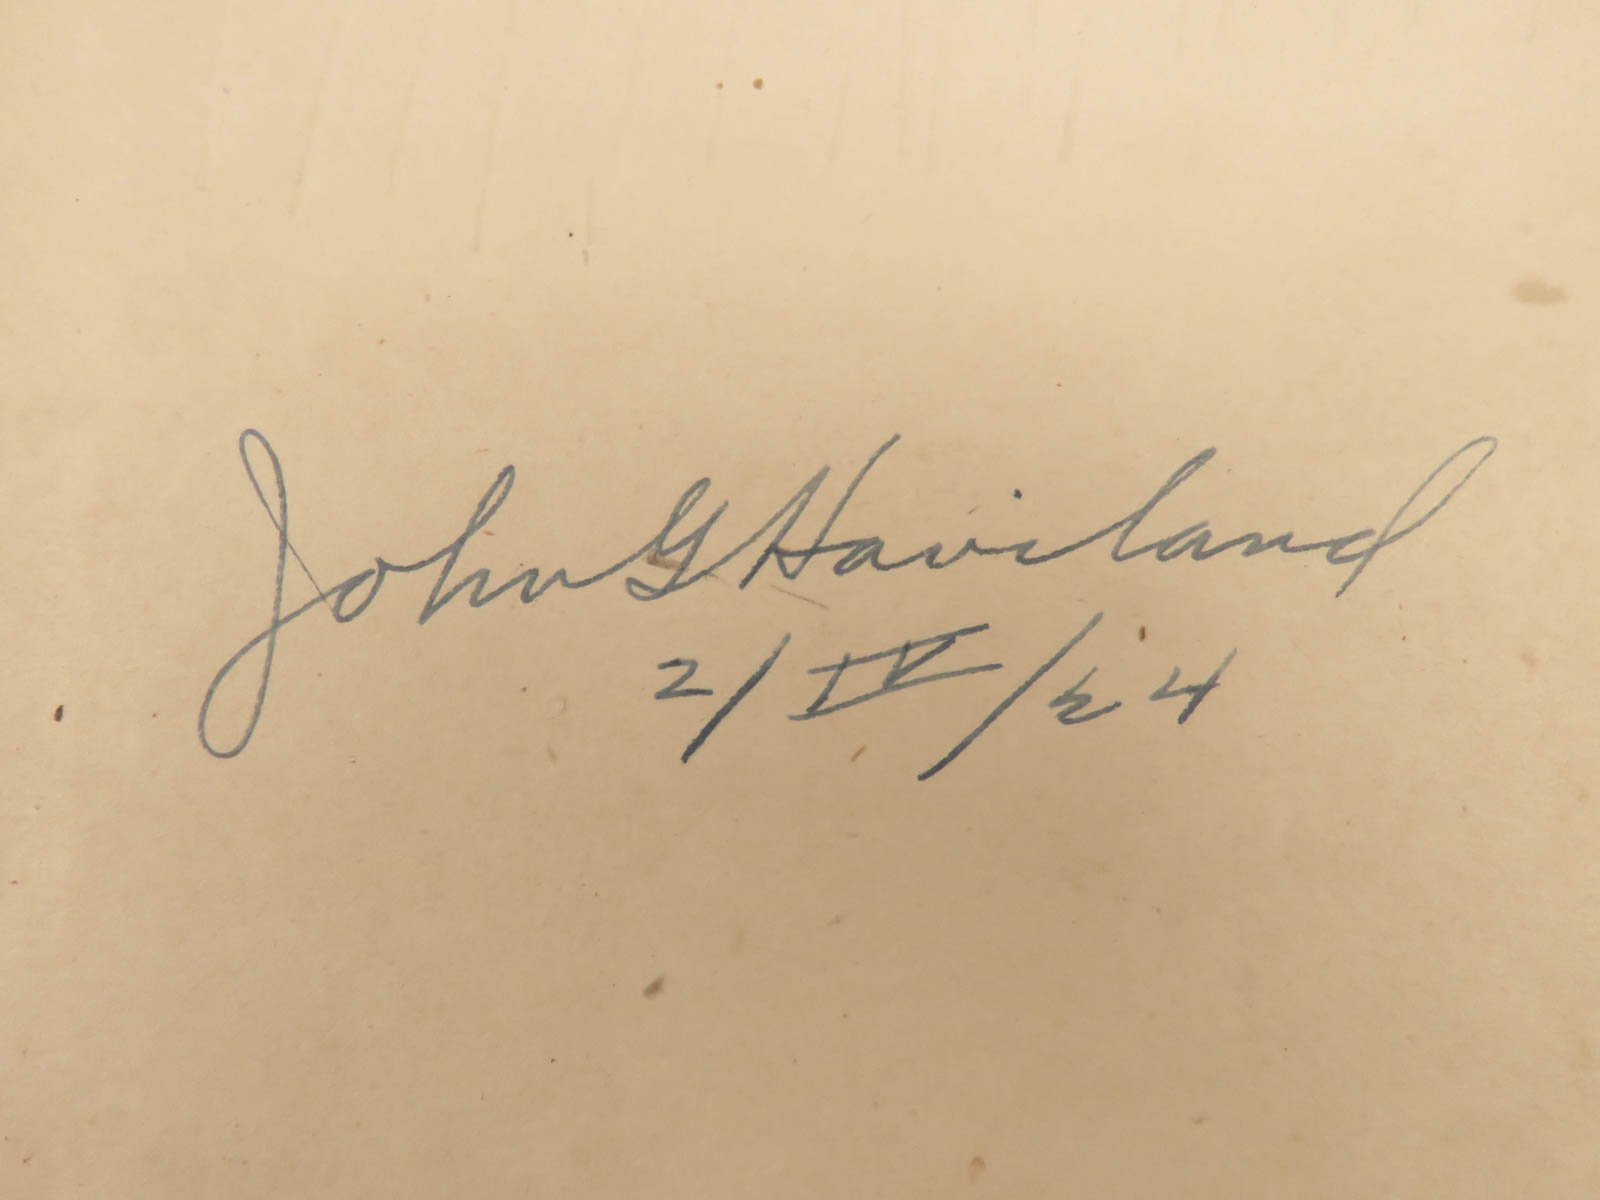 John G Haviland
2/IV/24